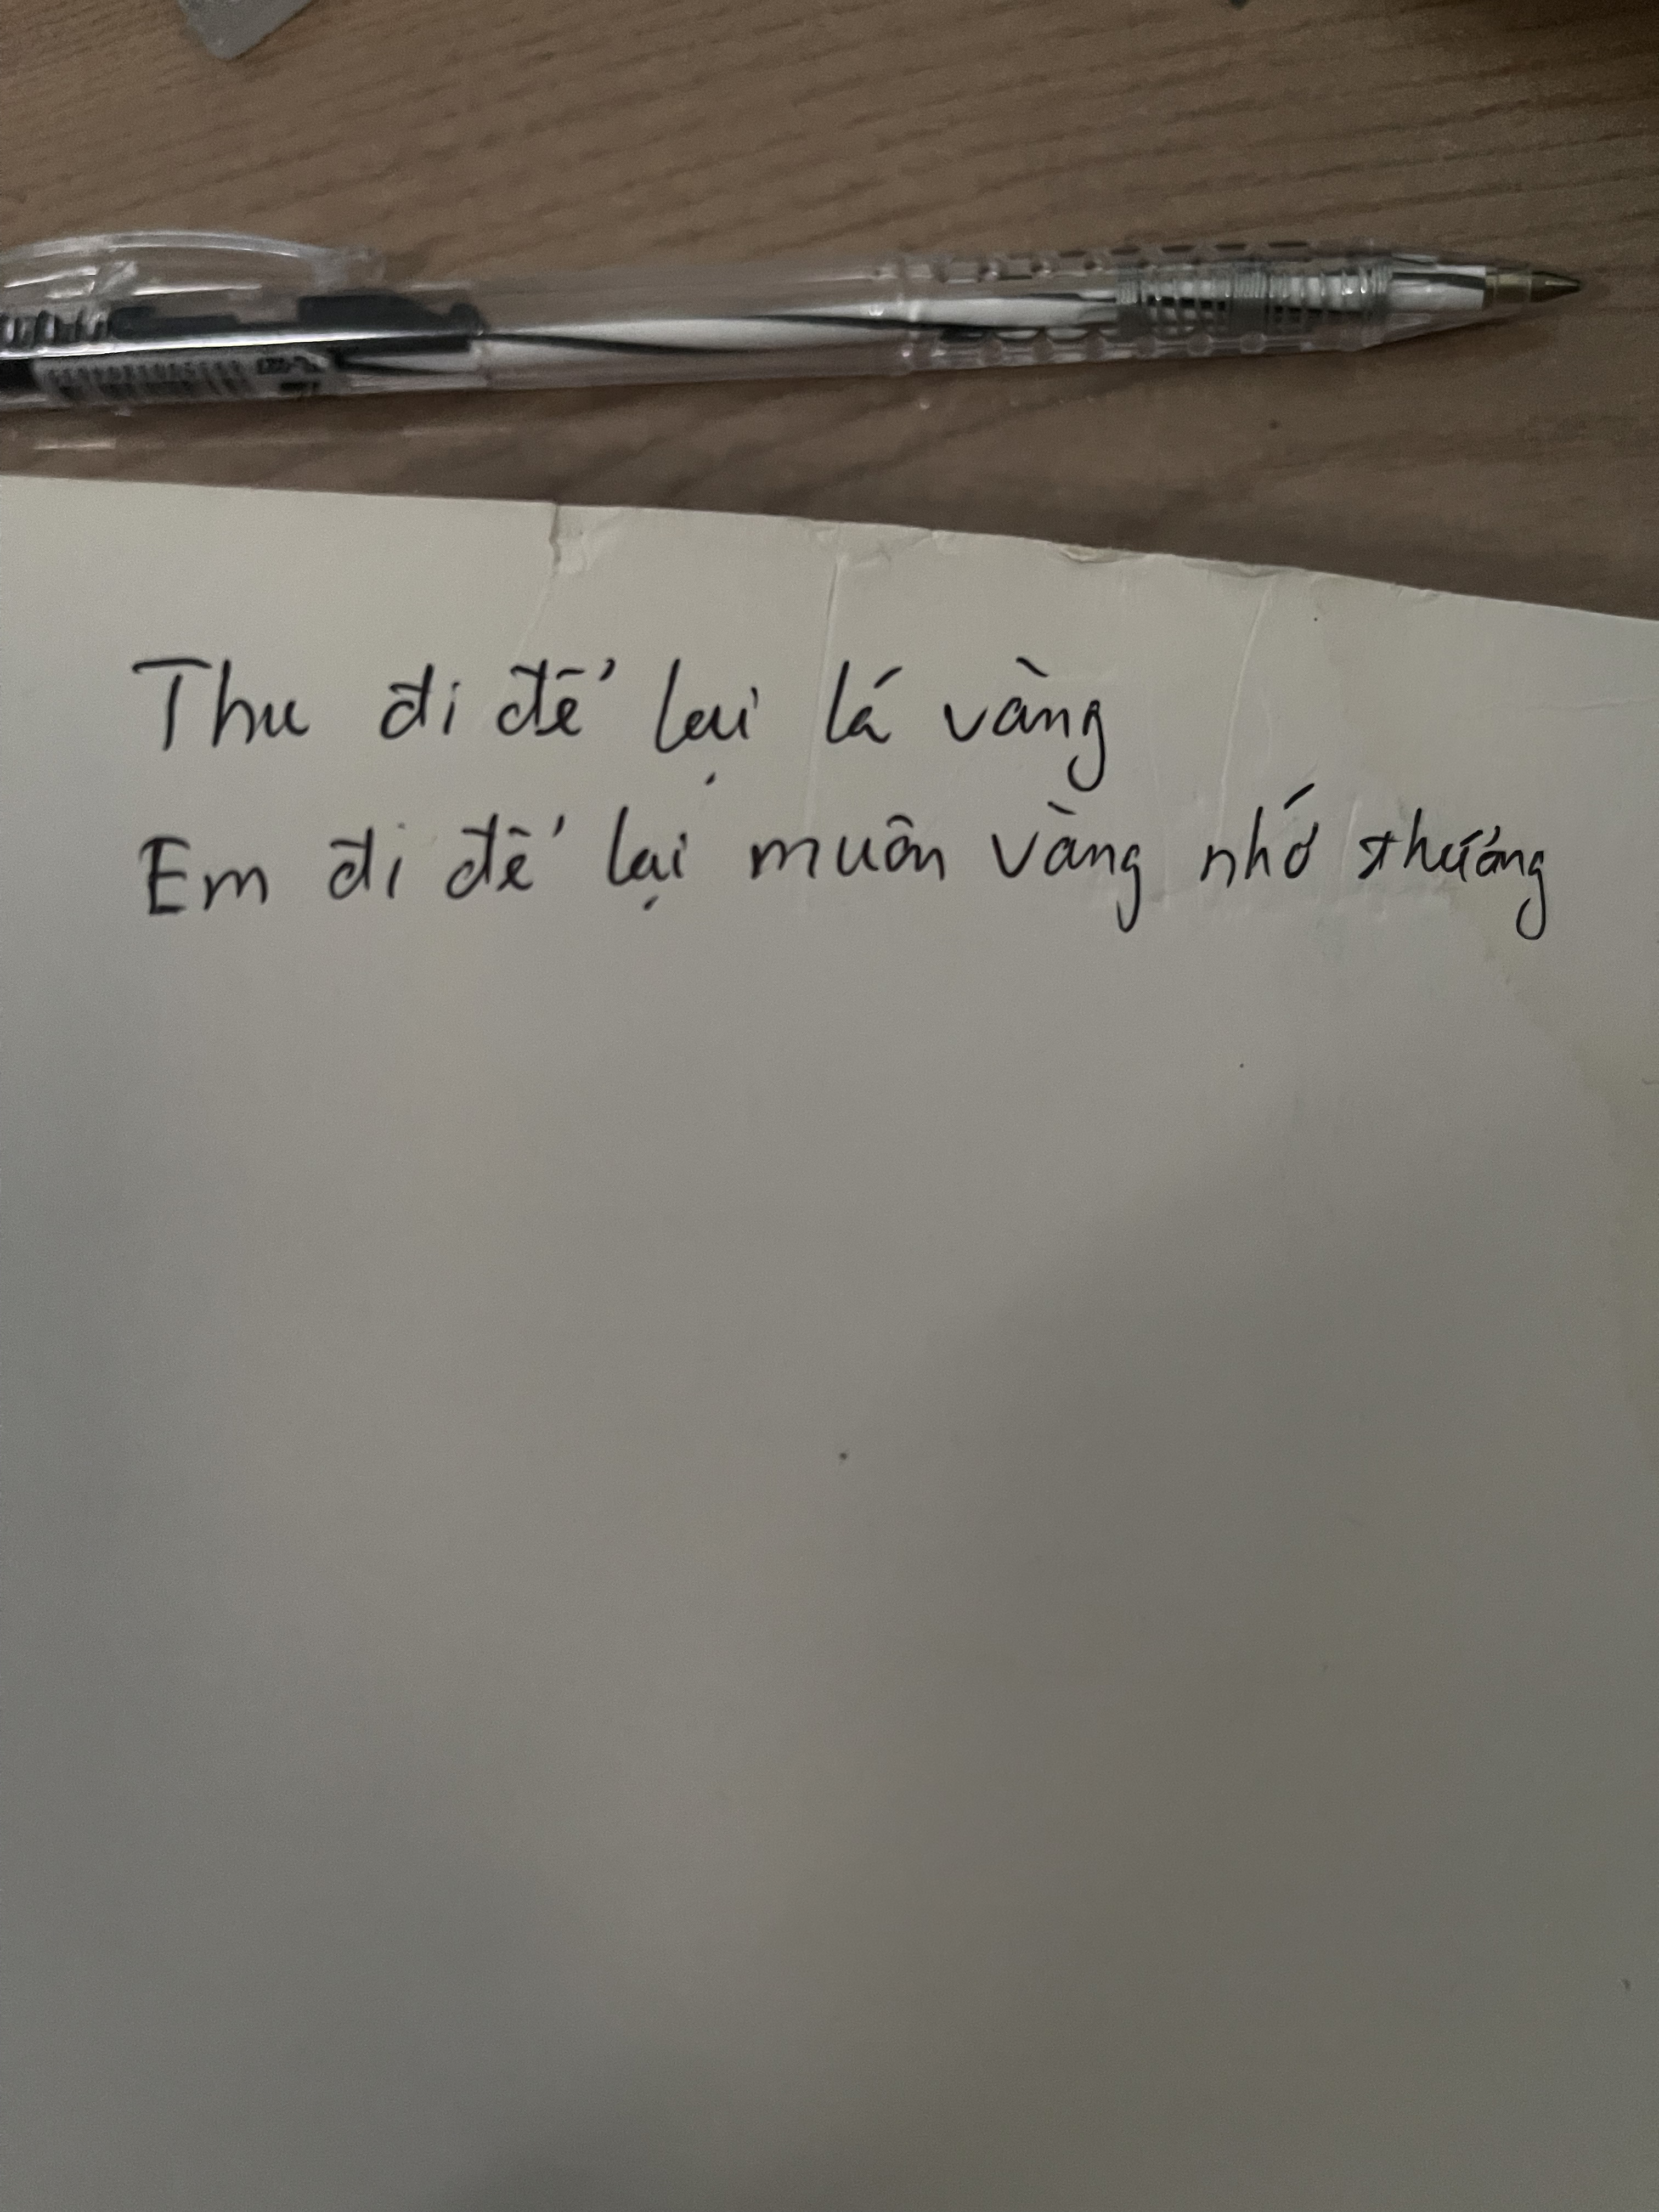 Thu đi để lại lá vàng
Em đi để lại muôn vàng nhớ thương